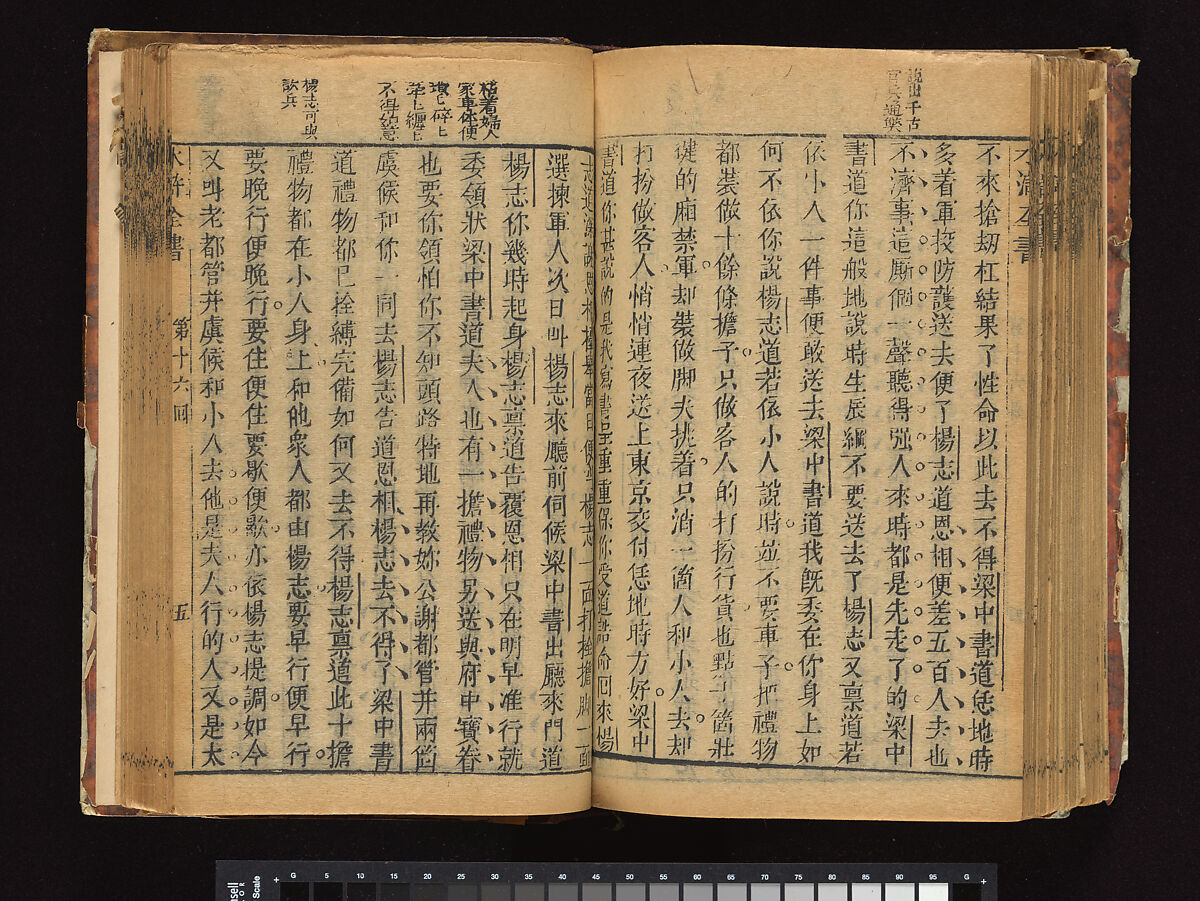 說出千古
官兵通獘
不來搶刼枉結果了性命以此去不得梁中書道恁地時
多着軍挍防護送去便了楊志道恩相便差五百人去也
不濟事這厮們一聲聽得强人來時都是先走了的梁中
書道你這般地說時生辰綱不要送去了楊志又禀道若
依小人一件事便敢送去梁中書道我旣委在你身上如
何不依你說楊志道若依小人說時並不要車子把禮物
都裝做十餘條擔子只做客人的打扮行貨也點十箇壯
健的廂禁軍却裝做脚夫挑着只消一箇人和小人去却
打扮做客人悄悄連夜送上東京交付恁地時方好梁中
書道你甚說的是我寫書呈重重保你受道誥命回來楊
志道深謝恩相擡舉當日便叫楊志一面打拴擔脚一面
選揀軍人次日叫楊志來廳前伺候梁中書出廳來門道
楊志你幾時起身楊志禀道告覆恩相只在明早准行就
委領狀梁中書道夫人也有一擔禮物另送與府中寶眷
也要你領怕你不知頭路特地再教妳公謝都管并兩個
虞候和你一同去楊志告道恩相楊志去不得了梁中書
道禮物都已拴縛完備如何又去不得楊志禀道此十擔
禮物都在小人身上和他衆人都由楊志要早行便早行
要晚行便晚行要住便住要歇便歇亦依楊志提調如今
又叫老都管并虞候和小人去他是夫人行的人又是太
粘着婦人
家事体便
楊志可與
水滸全書
第十六回
五